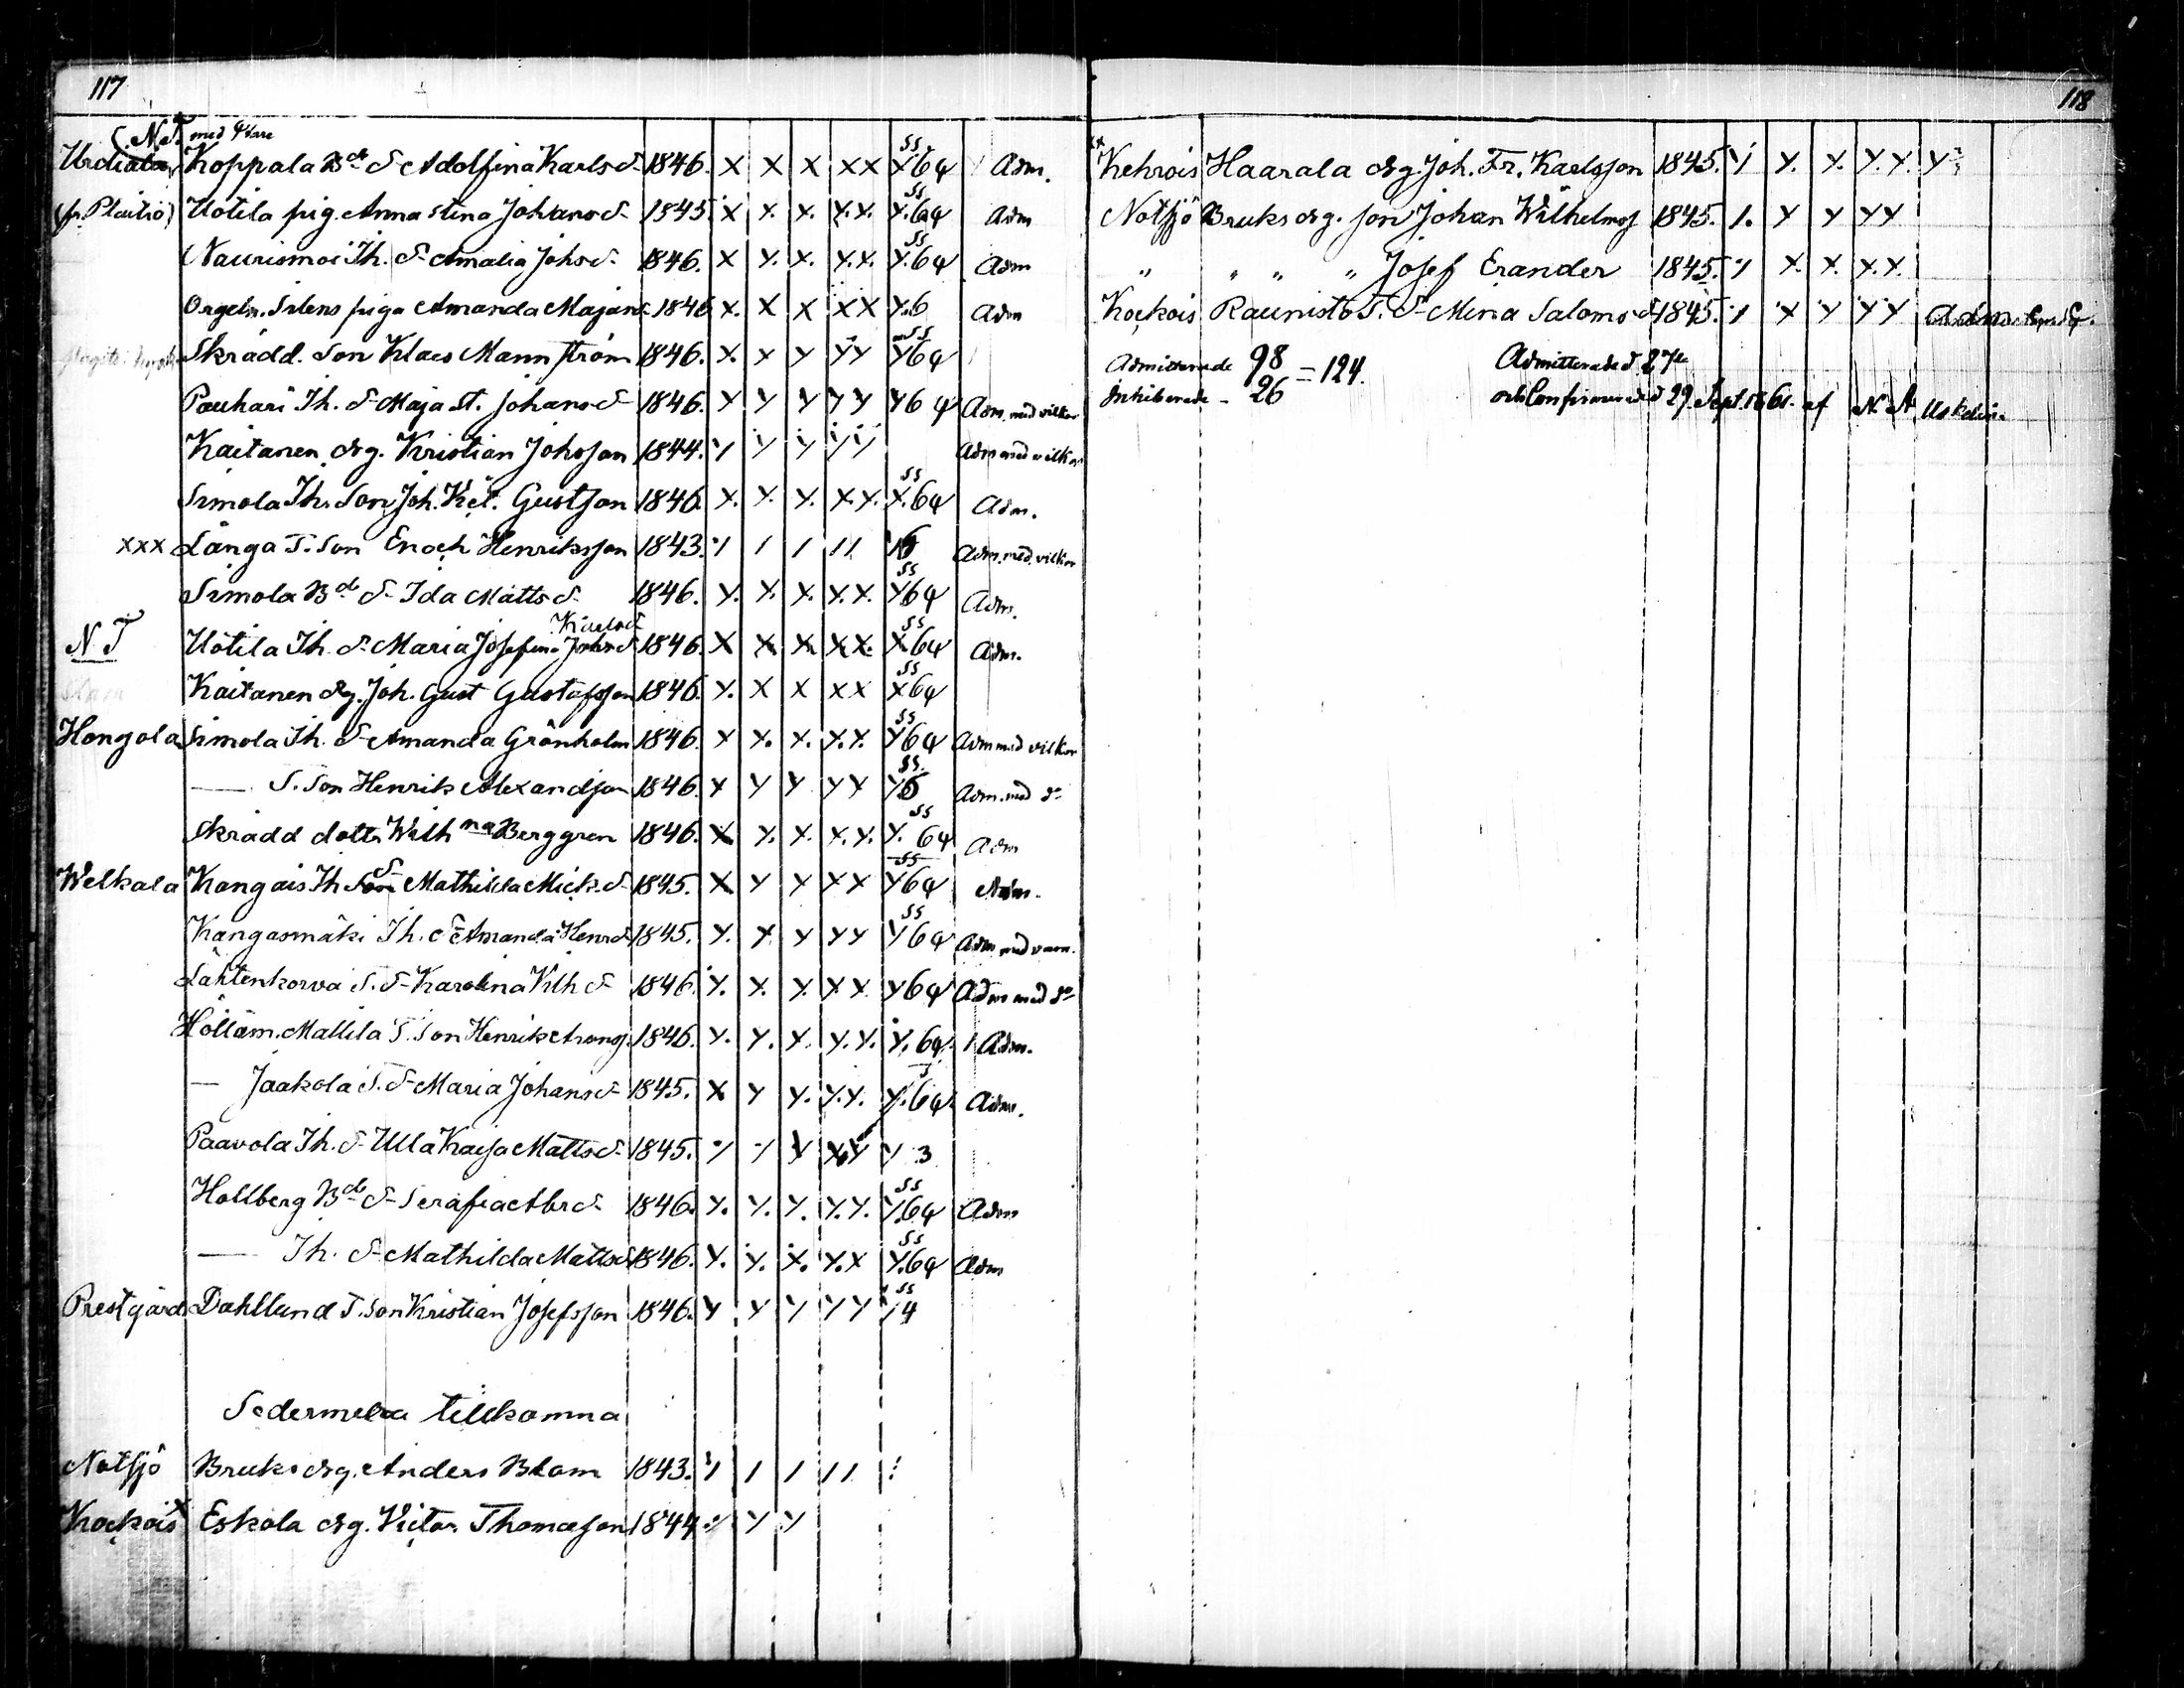 117
N.T. med
Urdiala Koppala Bde d. Adolfina Karlsd. 1846. X X X X X X 6 4 Adm.
Uotila pig. Anna Stina Johansd. 1845 X X. X. X.X. X. 6 4 Adm
Naurismoi Th. d. Amalia Johsd. 1846. X X. X. X.X. X. 6 4 Adm
Silens piga Amanda Majand. 1846 X. X X X X X.6 Adm
Skrädd. Son Klaes Mannström 1846. X. X Y Y Y Y 6 4
Pauhari Th. d. Maja St. Johansd. 1846. Y Y Y Y Y Y 6 4 Adm. med vilkor
Kaitanen drg. Kristian Johsson 1844. Adm med vilkor
Simola Th. Son Joh. Gustson 1846. X. X. X. X.X. X. 6 4 Adm.
XXX Långa T. Son Enoch Henriksson 1843. 1 1 1 1 1 Adm. med vilkor
Simola Bde d. Ida Mattsd. 1846. X. X. X. X.X. Y 6 4 Adm.
Karlsd.
N T Uotila Th. d. Maria Josefina 1846. X X X X X. X 6 4 Adm.
Kaitanen drg. Joh. Gust Gustafsson 1846. Y. X X X X X 6 4
Hongola Simola Th. d. Amanda Grönholm 1846. X X. X. X.X. Y 6 4 Adm med vilkor
— T. Son Henrik Alexandson 1846. X Y Y Y Y Y Adm. med do
Skrädd dottr. Wilhna Berggren 1846. X X. X. X.X. Y. 6 4 Adm
Welkala Kangais Th d. Mathilda Mick.d. 1845. X Y Y X X Y 6 4 Adm.
Kangasmäki Th. d. Amanda Henrd. 1845. Y. X Y Y Y Y 6 4 Adm med varn.
Lahtenkorva T. d. Karolina d. 1846. Y. X. X. X X Y 6 4 Adm med do
Hollam. Mallila T. Son Henrik 1846. Y. Y. X. Y.Y. Y. 6 4 Adm.
— Jaakola T. d. Maria Johansd. 1845. X Y Y. Y.Y. Y. 6 4 Adm.
Paavola Th. d. Ulla Kaisa Mattsd. 1845. Y X Y Y 3
Hollberg Bde d. Serafia Abrd. 1846. Y. Y. Y. Y.Y. Y. 6 4 Adm
— Th. d. Mathilda Mattsd. 1846. Y. Y. X. Y.X Y. 6 4 Adm
Prestgård Dahllund T. Son Kristian Josefsson 1846. Y Y Y Y Y 4
Sedermera tillkomna
Notsjö Bruks drg. Anders Blom 1843. 1 1 1 1 1
Kockois Eskola drg. Victor Thomasson 1844 Y Y
118
Kehrois Haarala drg. Joh. Fr. Karlsson 1845. Y Y. Y. Y.Y. Y
Notsjö Bruks drg. son Johan Wilhelmsj 1845. 1. Y Y Y Y
" " " " Josef Erander 1845. X. X. X.X.
Kockois Raunisto T. d. Mina Salomsd. 1845. Y Y Y Y Adm.
Admitterade 98
Inhiberade - 26 = 124.
Admitterade d. 27de
och Confirmerade d 29 Sept. 1861. af